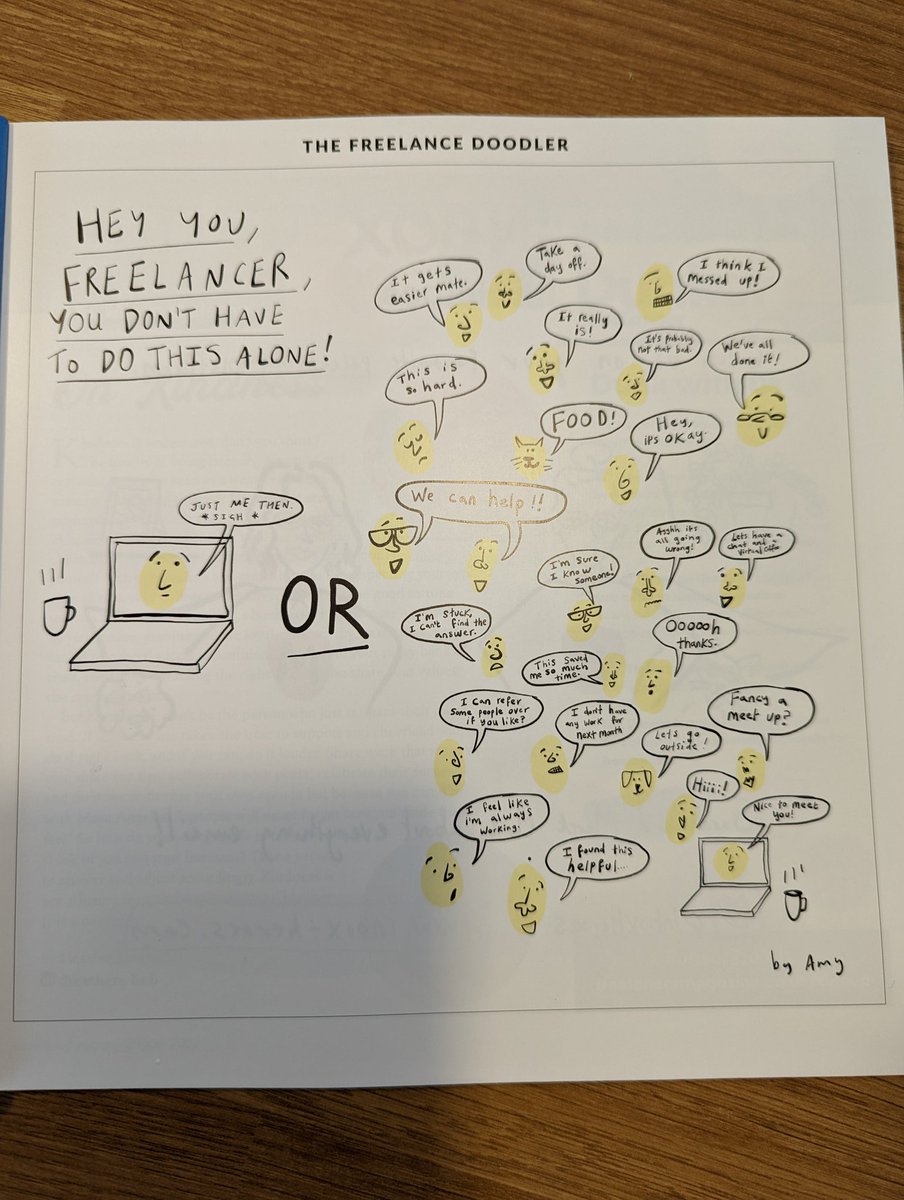 THE FREELANCE DOODLER
HEY YOU,
FREELANCER,
YOU DON'T HAVE
TO DO THIS ALONE!
JUST ME THEN.
*SIGH*
OR
It gets
easier mate.
Take a
day off.
I think I
messed up!
It really
is!
It's probably
not that bad.
We've all
done it!
This is
so hard.
FOOD!
Hey,
it's okay.
We can help!!
I'm sure
I know
someone!
Agghh it's
all going
wrong!
Lets have a
chat and a
virtual
I'm stuck,
I can't find the
answer.
Oooooh
thanks.
This saved
me so much
time.
I can refer
some people over
if you like?
I don't have
any work for
next month
Lets go
outside!
Fancy a
meet up?
Hiiii!
I feel like
i'm always
working.
Nice to meet
you!
I found this
helpful....
by Amy